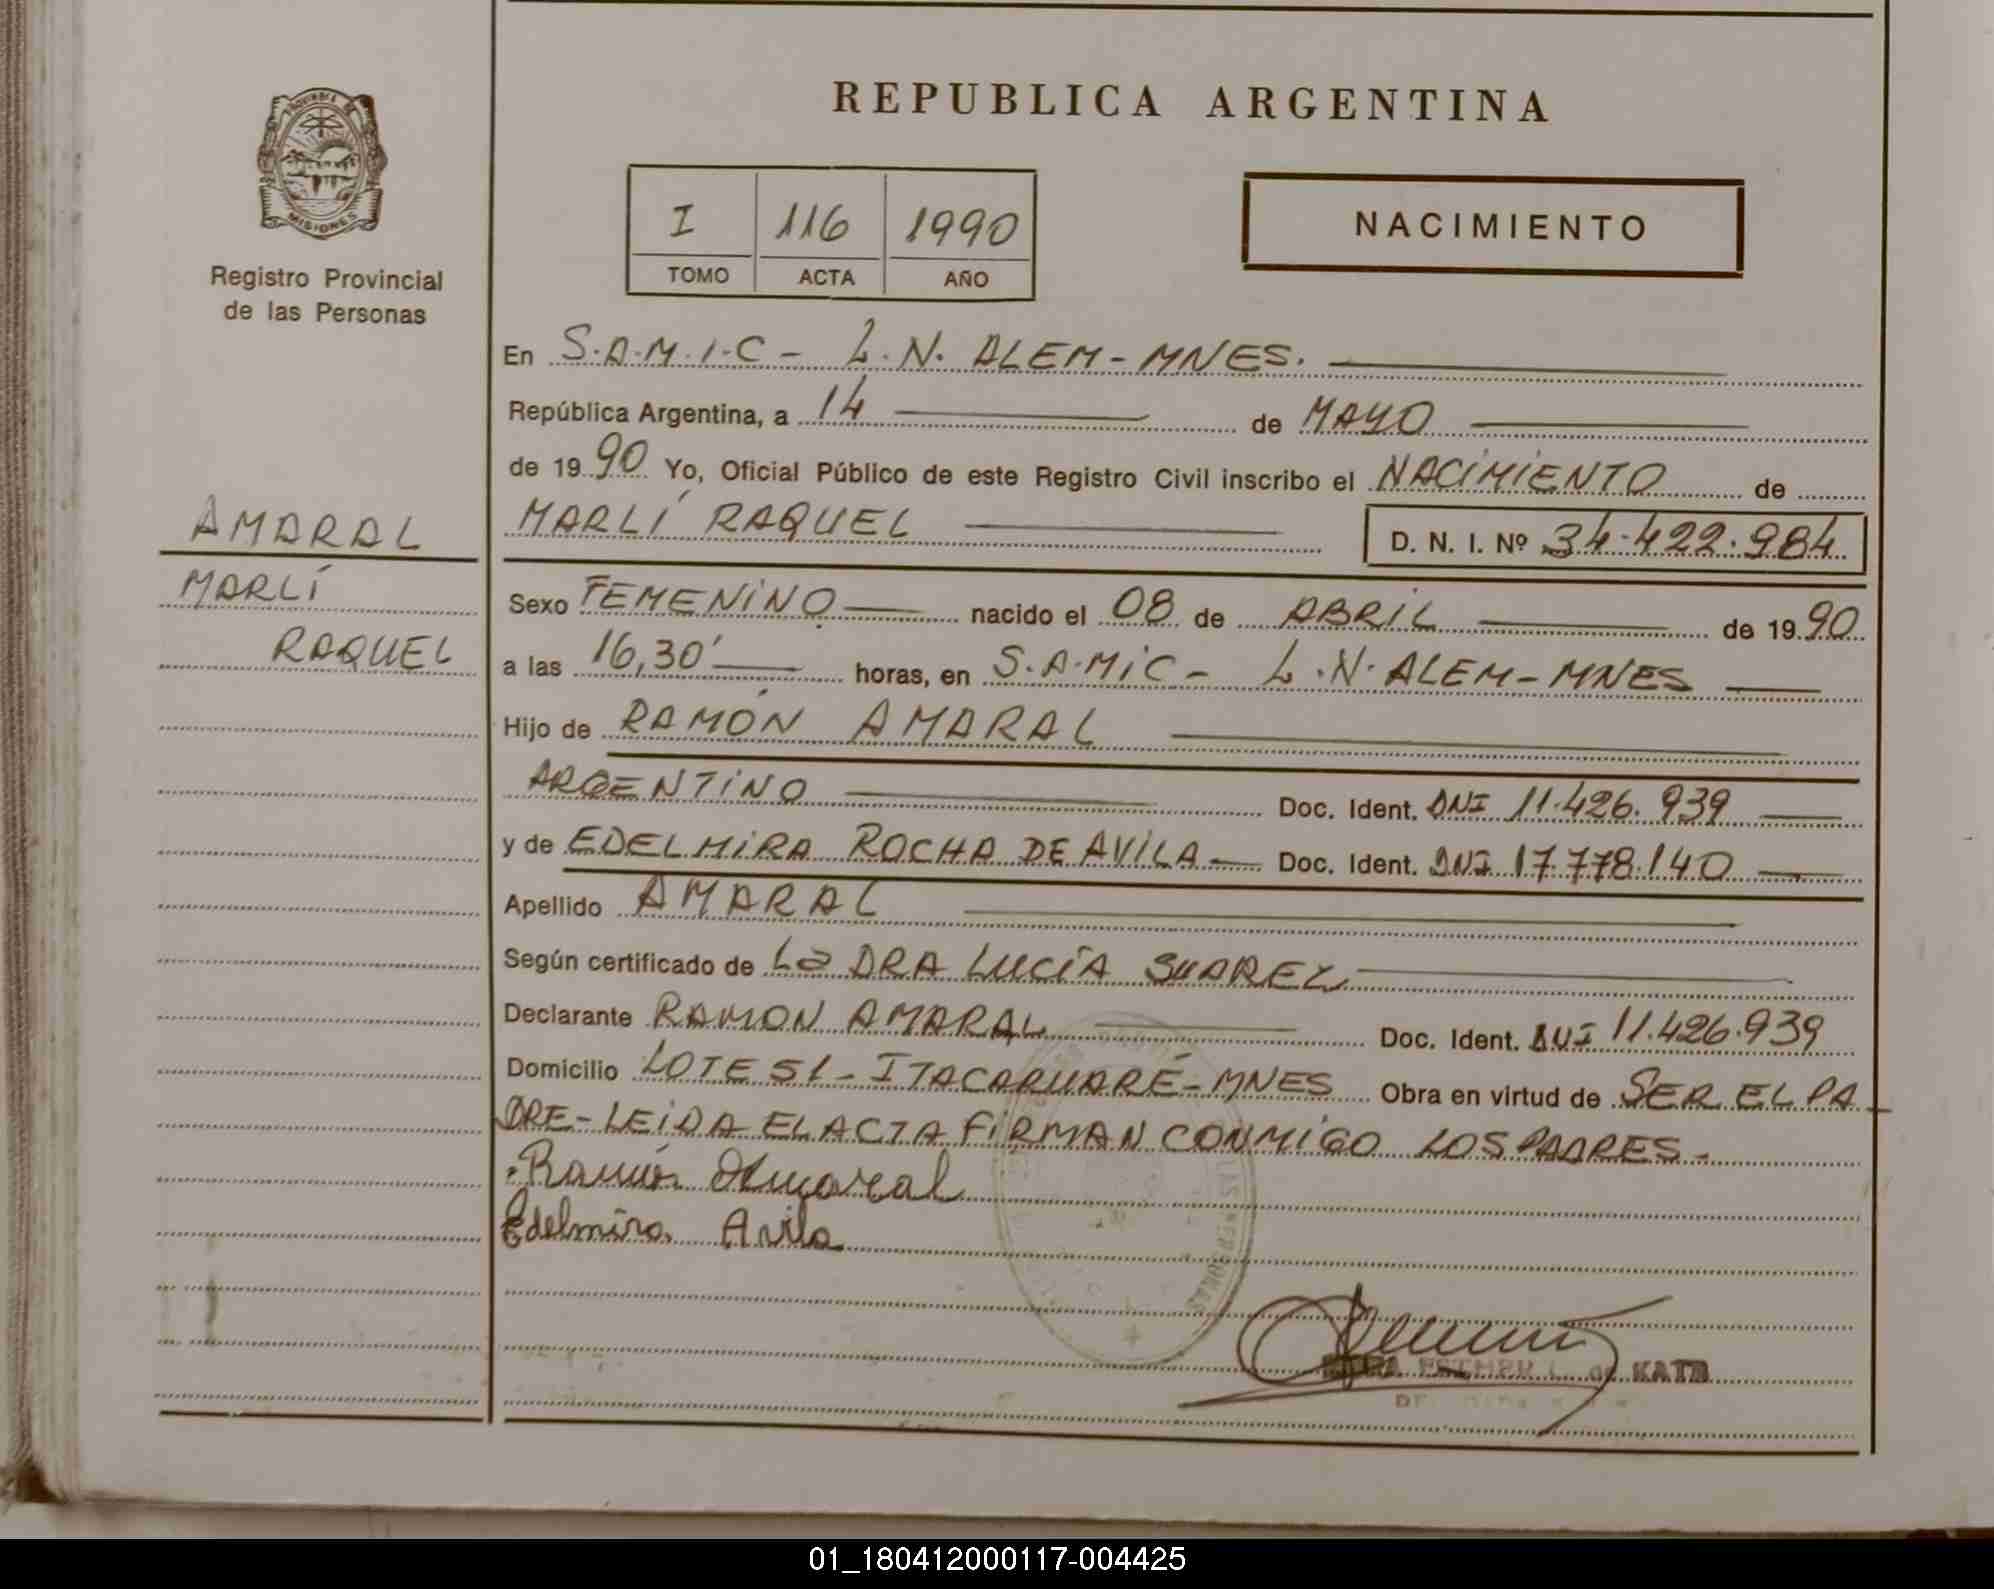 REPUBLICA ARGENTINA
MISIONES
Registro Provincial
de las Personas
I 116 1990
TOMO ACTA AÑO
NACIMIENTO
En S.A.M.I.C - L.N. ALEM - MNES.
República Argentina, a 14 de MAYO
de 1990 Yo, Oficial Público de este Registro Civil inscribo el NACIMIENTO de
MARLÍ RAQUEL D. N. I. Nº 34.422.984
AMARAL
MARLÍ
RAQUEL
Sexo FEMENINO nacido el 08 de ABRIL de 1990
a las 16,30' horas, en S.A.MIC - L.N. ALEM - MNES
Hijo de RAMÓN AMARAL
ARGENTINO Doc. Ident. DNI 11.426.939
y de EDELMIRA ROCHA DE AVILA Doc. Ident. DNI 17.778.140
Apellido AMARAL
Según certificado de La DRA LUCÍA SUAREZ
Declarante RAMON AMARAL Doc. Ident. DNI 11.426.939
Domicilio LOTE 51 - ITACARUARÉ - MNES Obra en virtud de SER EL PA
DRE - LEIDA EL ACTA FIRMAN CONMIGO LOS PADRES -
Ramón Amaral
Edelmira Avila
ESTHER L. de KATZ
01_180412000117-004425